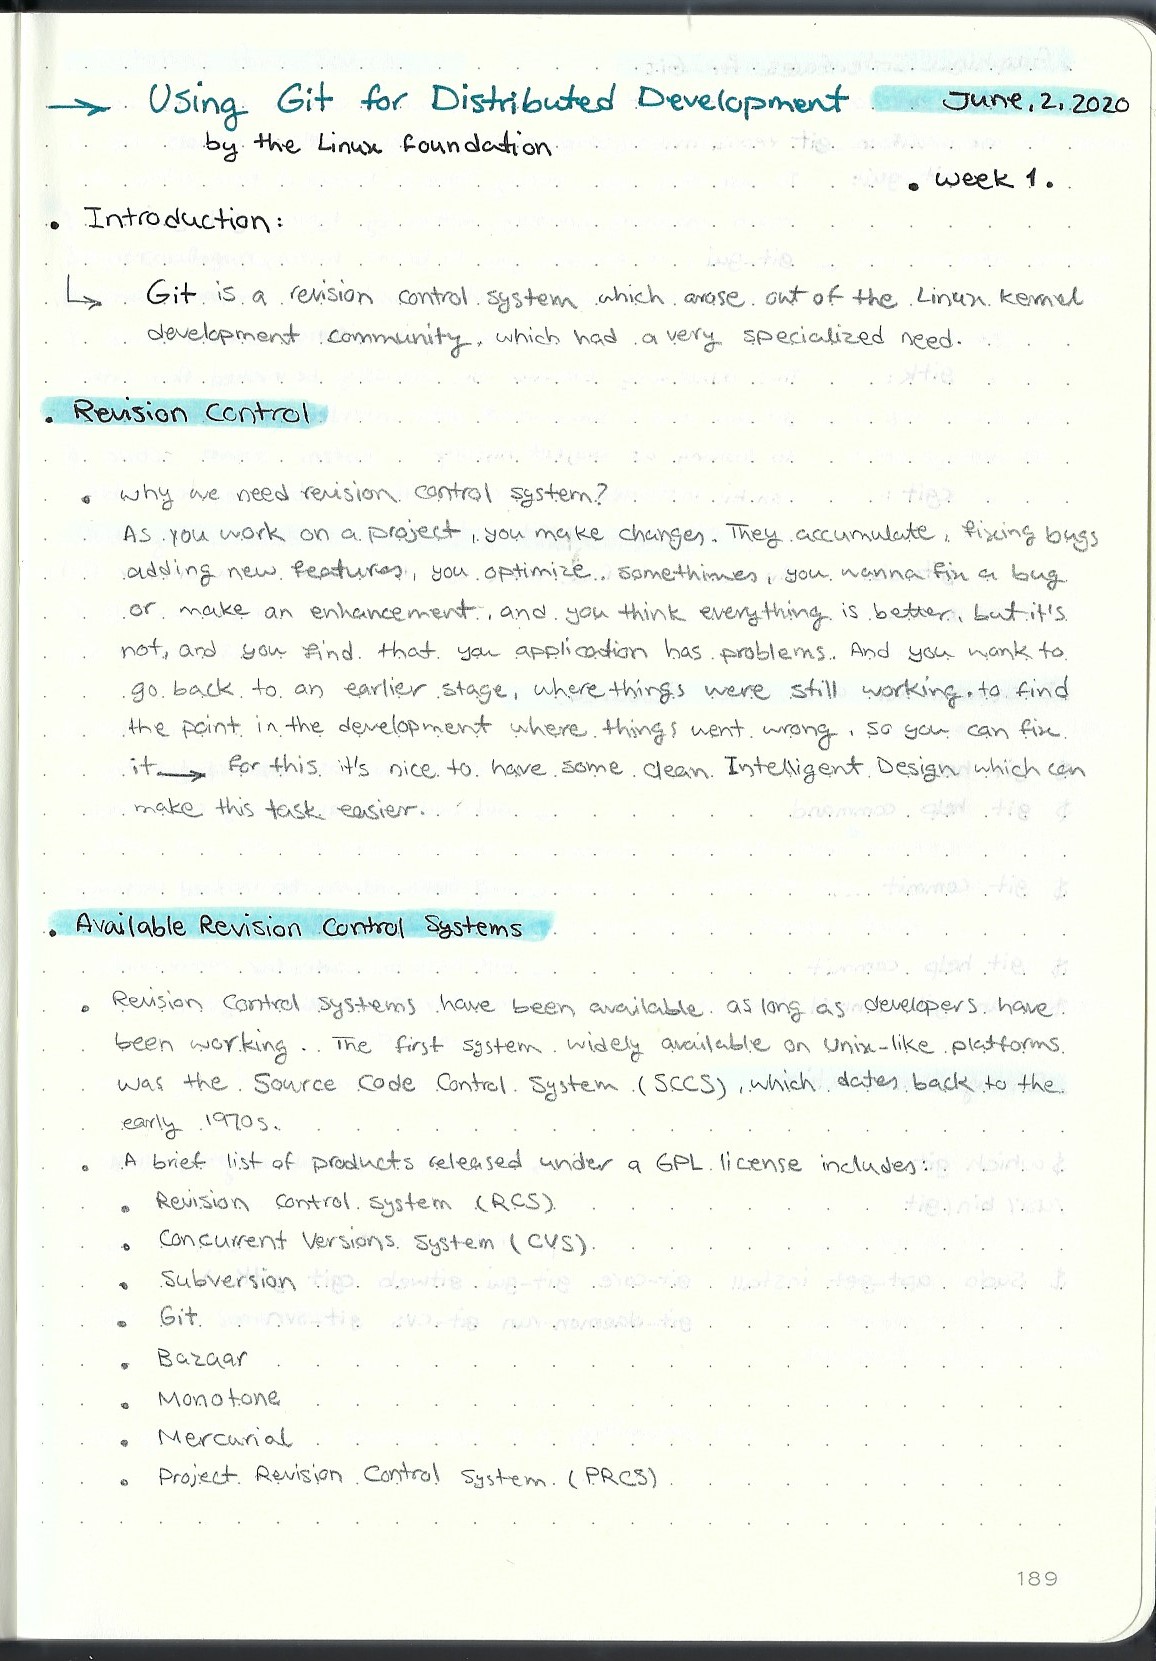 → Using Git for Distributed Development June, 2, 2020
by the Linux foundation
• week 1.
• Introduction:
↳ Git is a revision control system which arose out of the Linux kernel
development community, which had a very specialized need.
• Revision Control
• why we need revision control system?
As you work on a project, you make changes. They accumulate, fixing bugs
adding new features, you optimize. somethimes, you wanna fix a bug
or make an enhancement, and you think everything is better, but it's
not, and you find that you application has problems. And you wank to
go back to an earlier stage, where things were still working, to find
the point in the development where things went wrong, so you can fix
it → for this it's nice to have some clean Intelligent Design which can
make this task easier.
• Available Revision Control Systems
• Revision Control systems have been available as long as developers have
been working. The first system widely available on Unix-like platforms
was the Source Code Control System (SCCS), which dates back to the
early 1970s.
• A brief list of products released under a GPL license includes:
• Revision Control System (RCS)
• Concurrent Versions System (CVS)
• Subversion
• Git
• Bazaar
• Monotone
• Mercurial
• Project Revision Control System (PRCS)
189